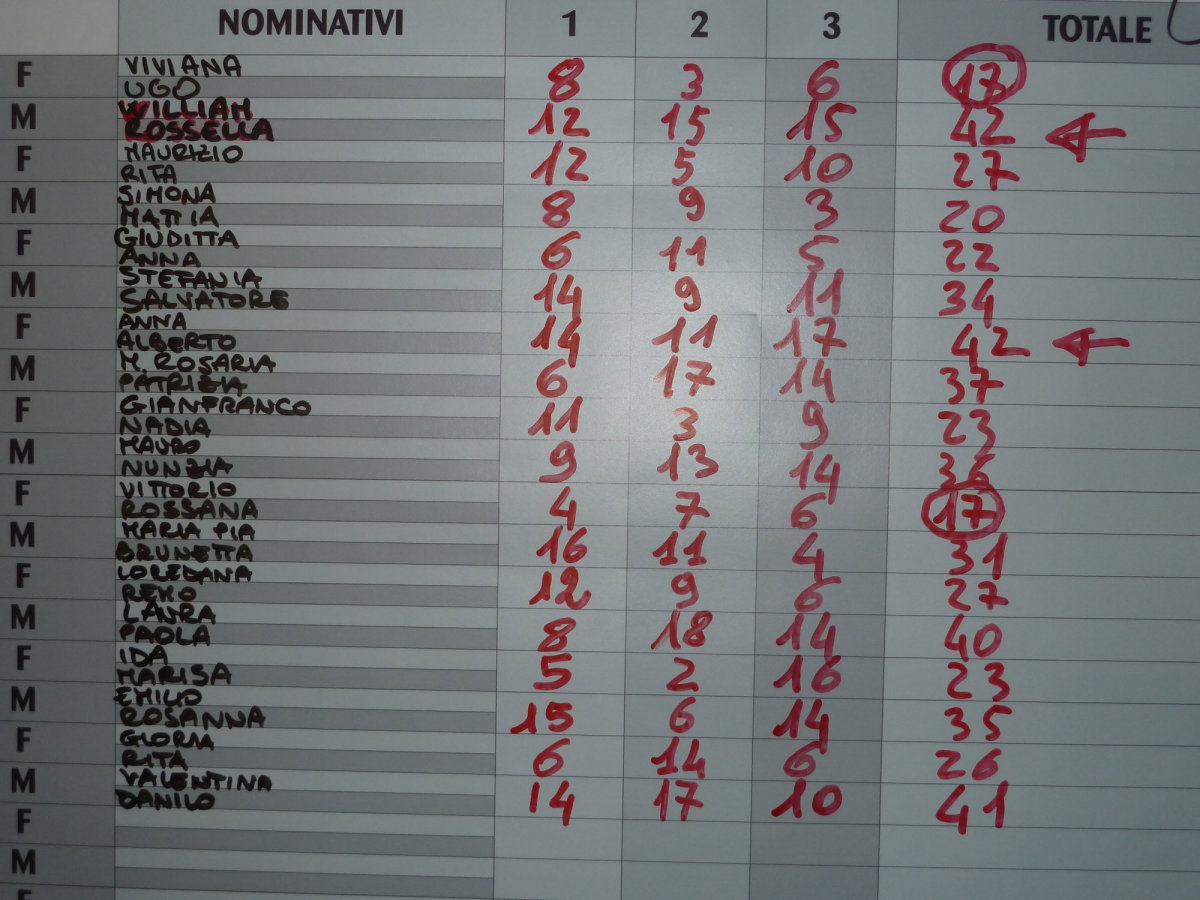 NOMINATIVI 1 2 3 TOTALE
F VIVIANA 8 3 6 17
UGO
M WILLIAM 12 15 15 42
ROSSELLA
F MAURIZIO 12 5 10 27
RITA
M SIMONA 8 9 3 20
MATTIA
F GIUDITTA 6 11 5 22
ANNA
M STEFANIA 14 9 11 34
SALVATORE
F ANNA 14 11 17 42
ALBERTO
M M. ROSARIA 6 17 14 37
PATRIZIA
F GIANFRANCO 11 3 9 23
NADIA
M MAURO 9 13 14 36
NUNZIA
F VITTORIO 4 7 6 17
ROSSANA
M MARIA PIA 16 11 4 31
BRUNETTA
F LOREDANA 12 9 6 27
REMO
M LAURA 8 18 14 40
PAOLA
F IDA 5 2 16 23
MARISA
M EMILIO 15 6 14 35
ROSANNA
F GLORIA 6 14 6 26
RITA
M VALENTINA 14 17 10 41
DANILO
F
M
F